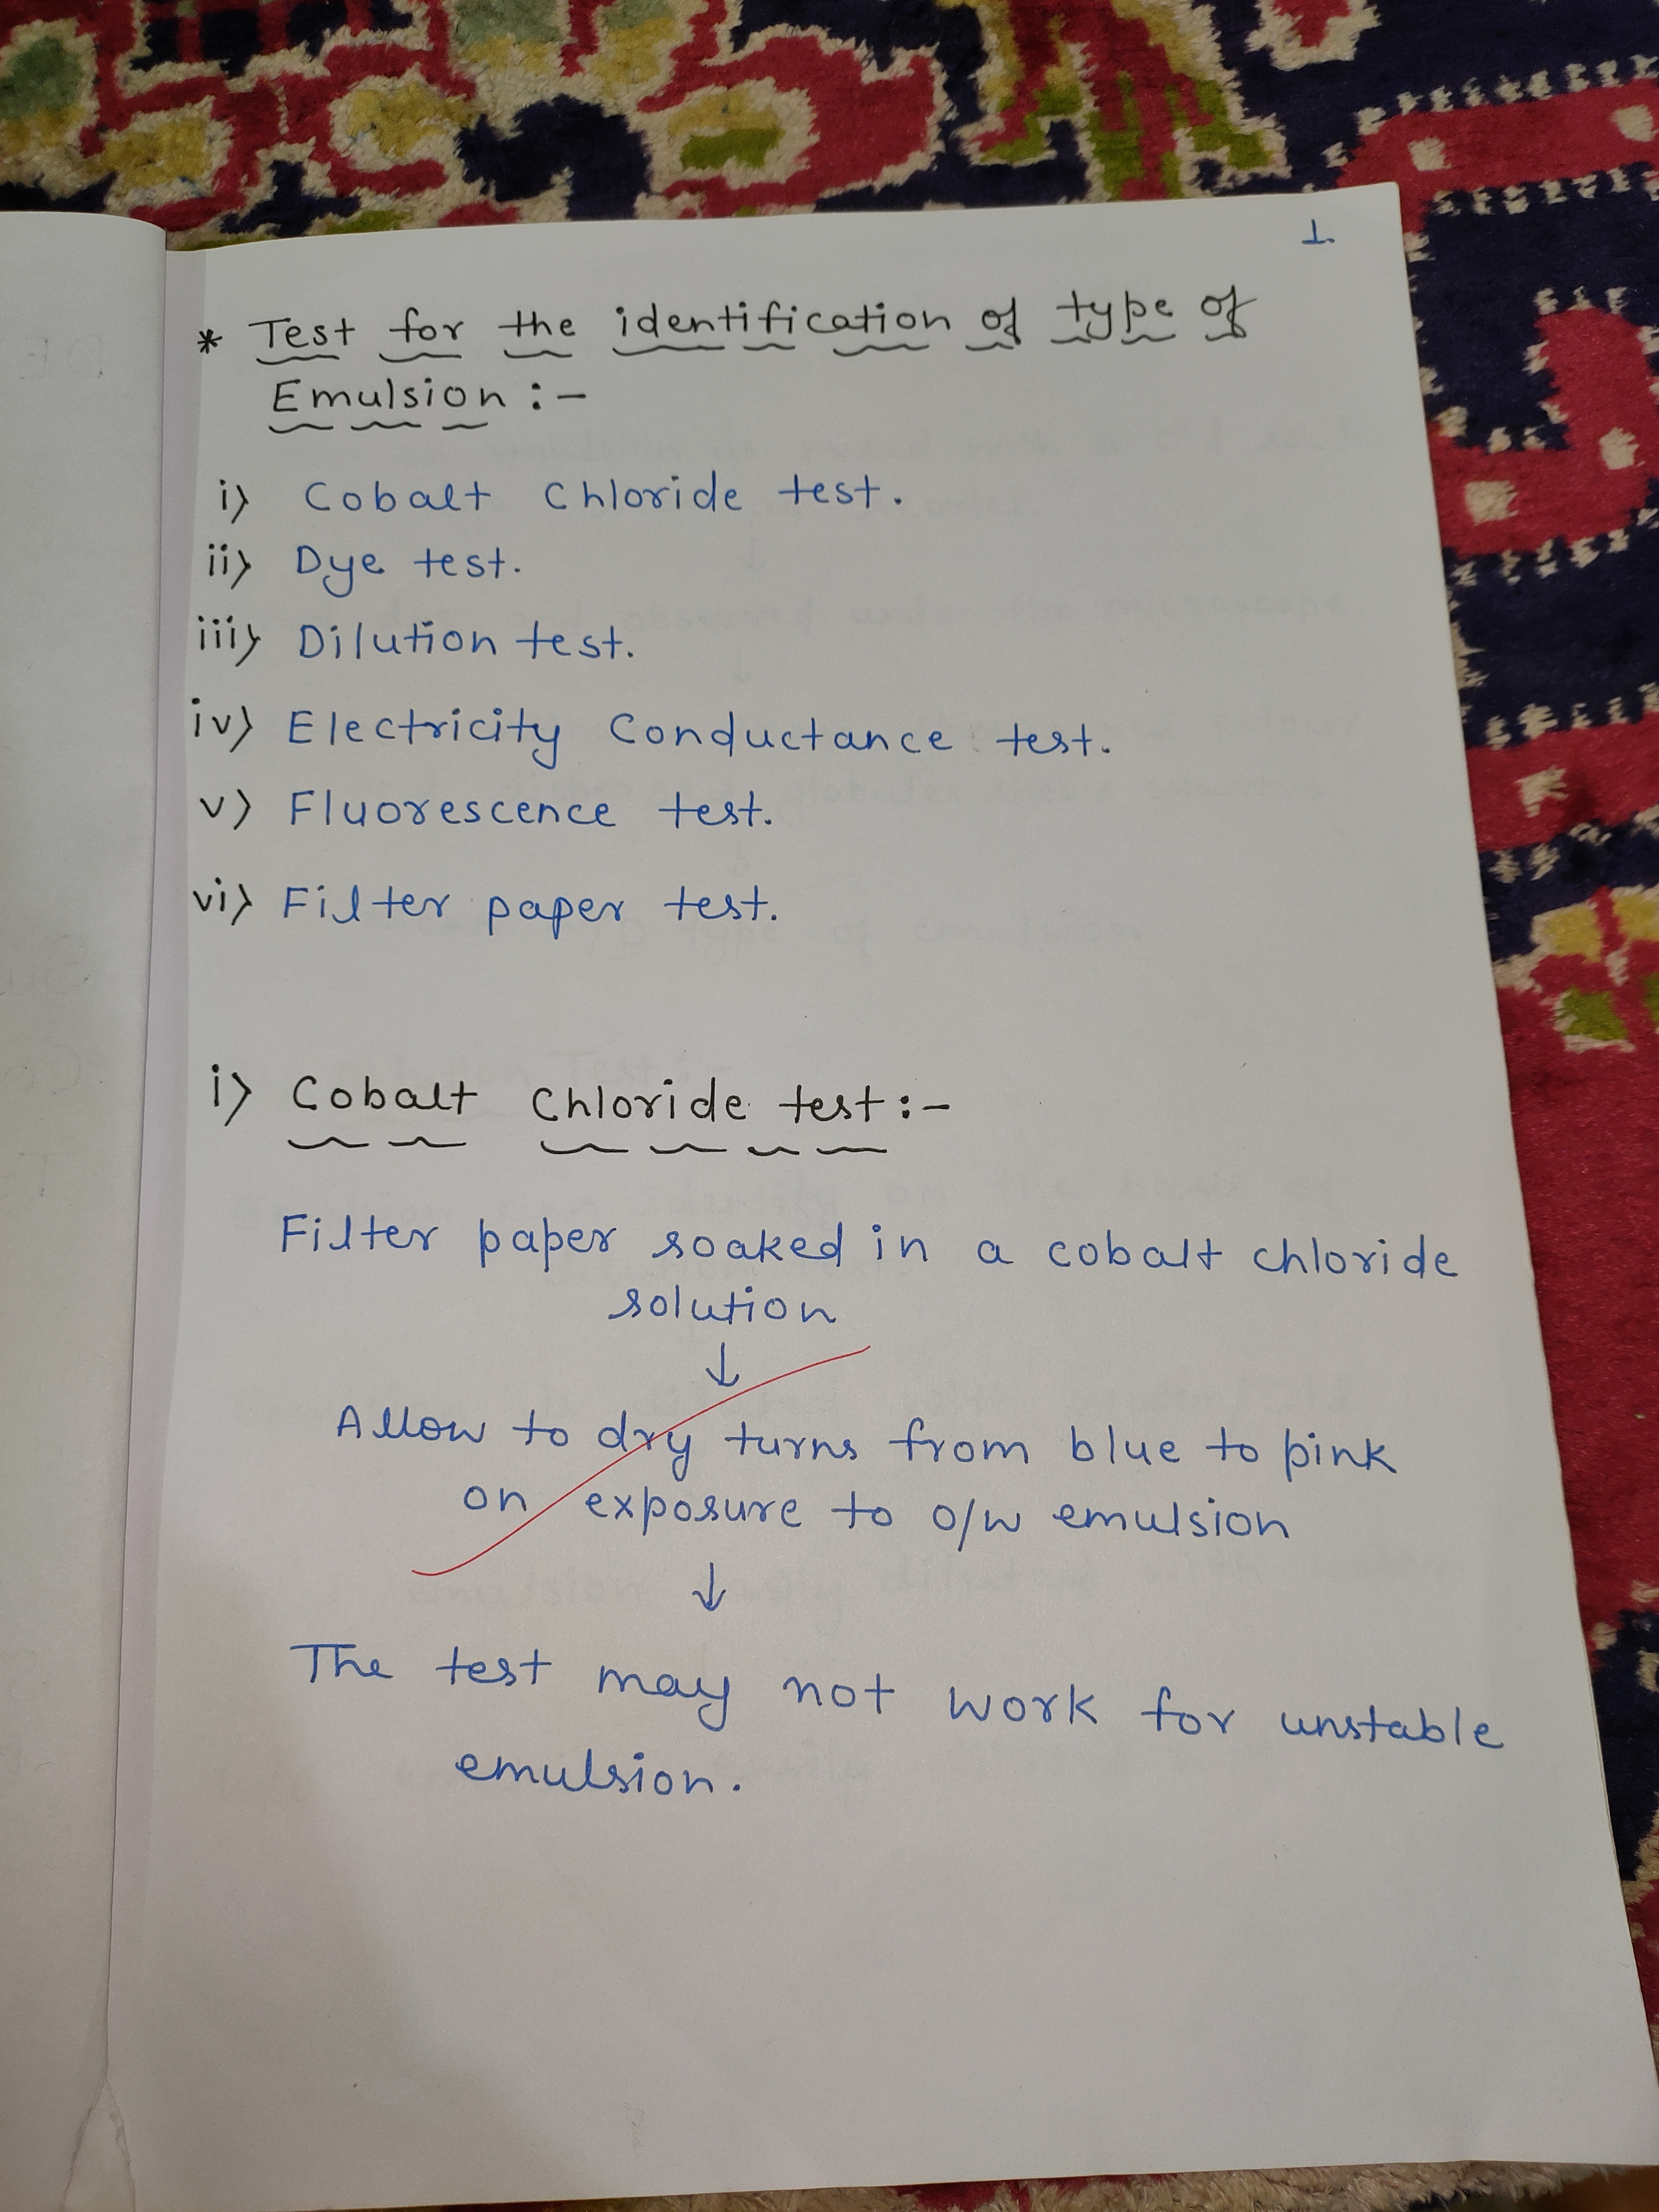 1.
* Test for the identification of type of
Emulsion :-
i) Cobalt Chloride test.
ii) Dye test.
iii) Dilution test.
iv) Electricity Conductance test.
v) Fluorescence test.
vi) Filter paper test.
i) Cobalt Chloride test :-
Filter paper soaked in a cobalt chloride
solution
↓
Allow to dry turns from blue to pink
on exposure to o/w emulsion
↓
The test may not work for unstable
emulsion.